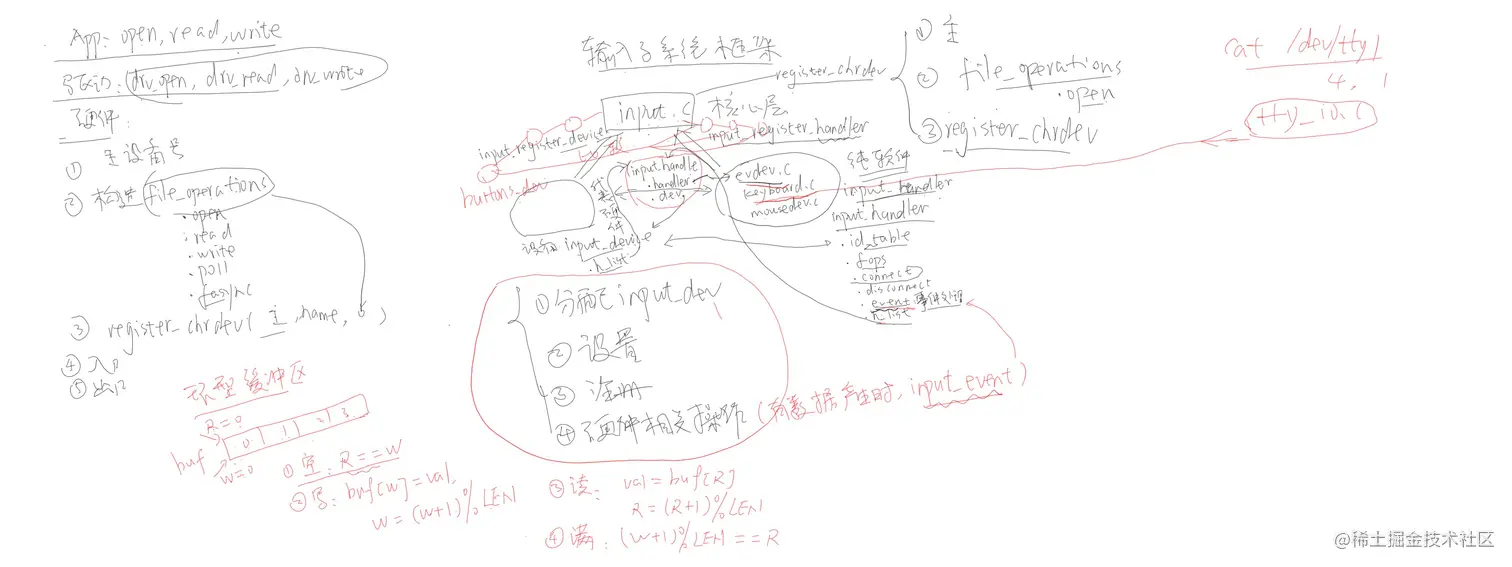 App: open, read, write
写驱动: drv_open, drv_read, drv_write
硬件:
① 主设备号
② 构建 file_operations
.open
.read
.write
.poll
.fasync
③ register_chrdev( 主, name, )
④ 入口
⑤ 出口
环型缓冲区
R=0
buf
0 1 2 3
W=0
① 空: R==W
② 写: buf[W]=val,
W=(W+1)%LEN
③ 读: val=buf[R]
R=(R+1)%LEN
④ 满: (W+1)%LEN==R
输入子系统框架
input.c
核心层
register_chrdev
① 主
② file_operations
.open
③ register_chrdev
cat /dev/tty1
4, 1
tty_io.c
input_register_device
input_register_handler
buttons_dev
input_handle
.handler
.dev
evdev.c
keyboard.c
mousedev.c
纯软件
input_handler
input_handler
.id_table
.fops
.connect
.disconnect
.event 事件处理
.h_list
代表硬件
设备 input_device
.h_list
① 分配 input_dev
② 设置
③ 注册
④ 硬件相关操作 (有数据产生时, input_event)
@稀土掘金技术社区